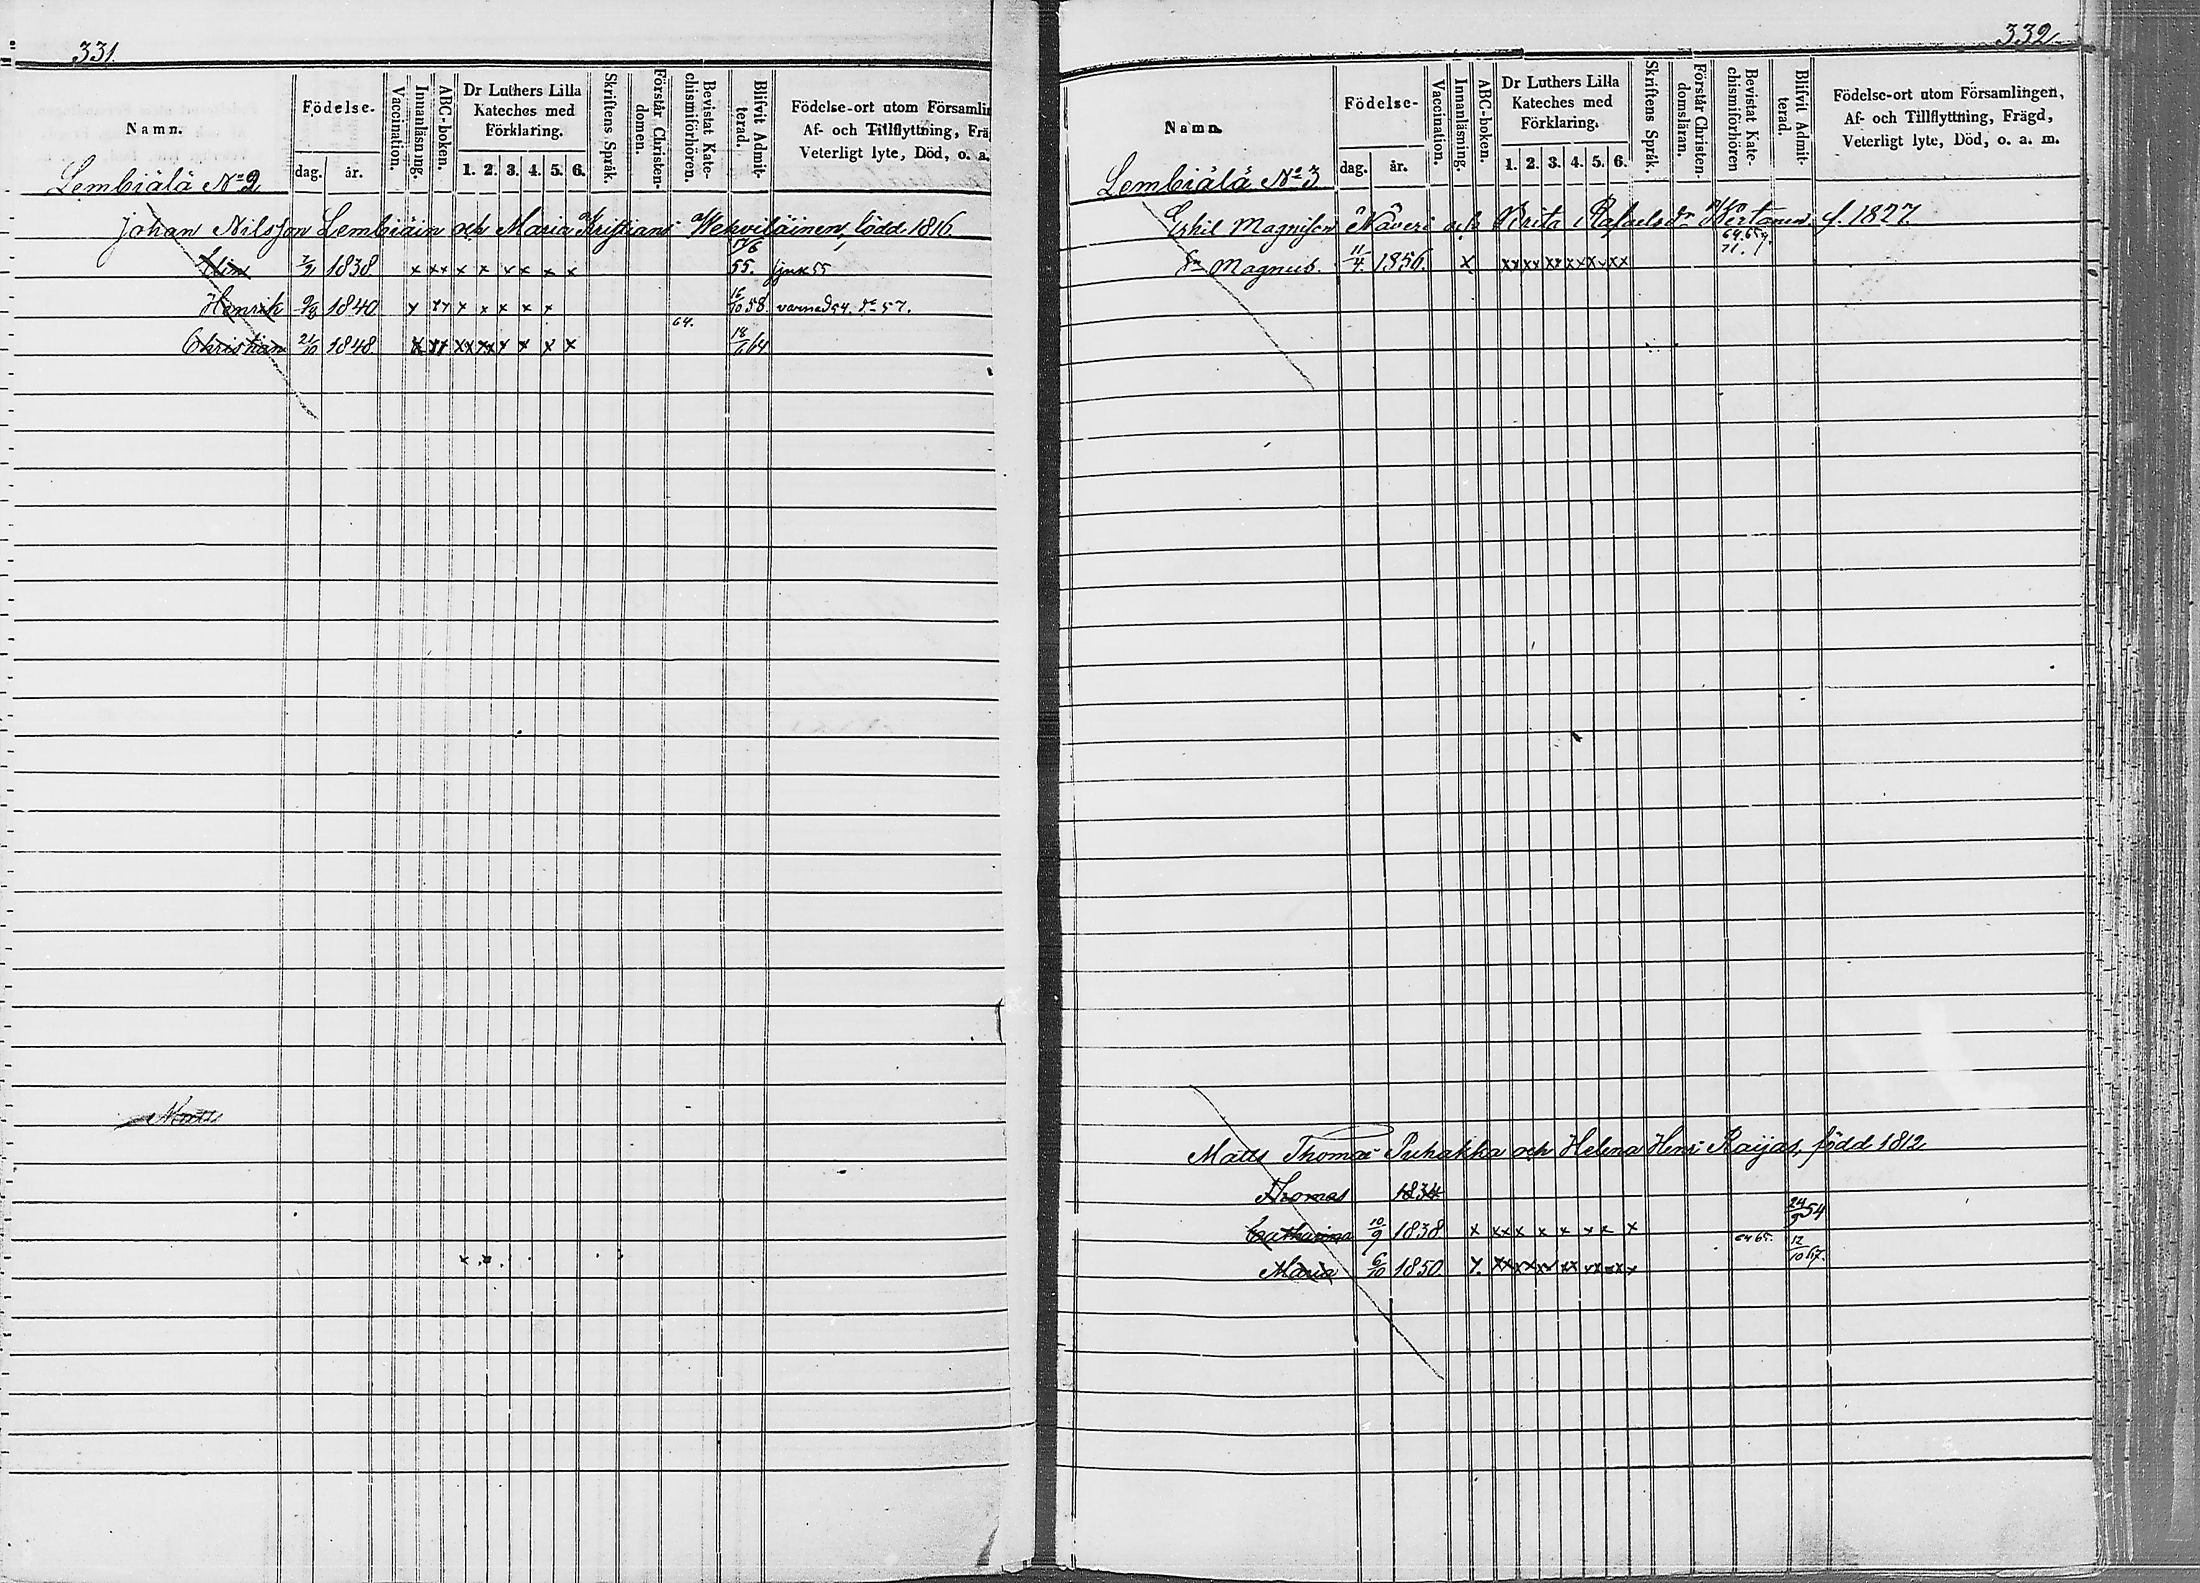 331.
Namn.
Födelse-
dag.
år.
Vaccination.
Innanläsning.
ABC-boken.
Dr Luthers Lilla
Kateches med
Förklaring.
1. 2. 3. 4. 5. 6.
Skriftens Språk.
Förstår Christen-
domen.
Bevistat Kate-
chismiförhören.
Blifvit Admit-
terad.
Födelse-ort utom Församlin
Af- och Tillflyttning, Frä
Veterligt lyte, Död, o. a.
Lembiälä No 2
Johan Nilsson Lembiäin och Maria Kristians född 1816
1838 x x x x x x x x x 55.
Henrik 1840 x x x x x x 16/10 58. varnad 54. do 57.
64.
Christian 21/10 1848. 18/ 64
Matts
332
Namn.
Födelse-
dag.
år.
Vaccination.
Innanläsning.
ABC-boken.
Dr Luthers Lilla
Kateches med
Förklaring.
1. 2. 3. 4. 5. 6.
Skriftens Språk.
Förstår Christen-
domsläran.
Bevistat Kate-
chismiförhören
Blifvit Admit-
terad.
Födelse-ort utom Församlingen,
Af- och Tillflyttning, Frägd,
Veterligt lyte, Död, o. a. m.
Lembiälä No 3
Eskil Magnisson Näveri och Brita Rafaelsdr f. 1827.
71.
Magnus. 11/4 1856. x xx xx xx xx xx xx
Matts Thomas Puhakka och Helena Henr Raijas, född 1812
Thomas 1834
24/9 54
Catharina 10/9 1838 x x x x x x x x x 64 65. 12/10 67.
Maria 6/10 1850